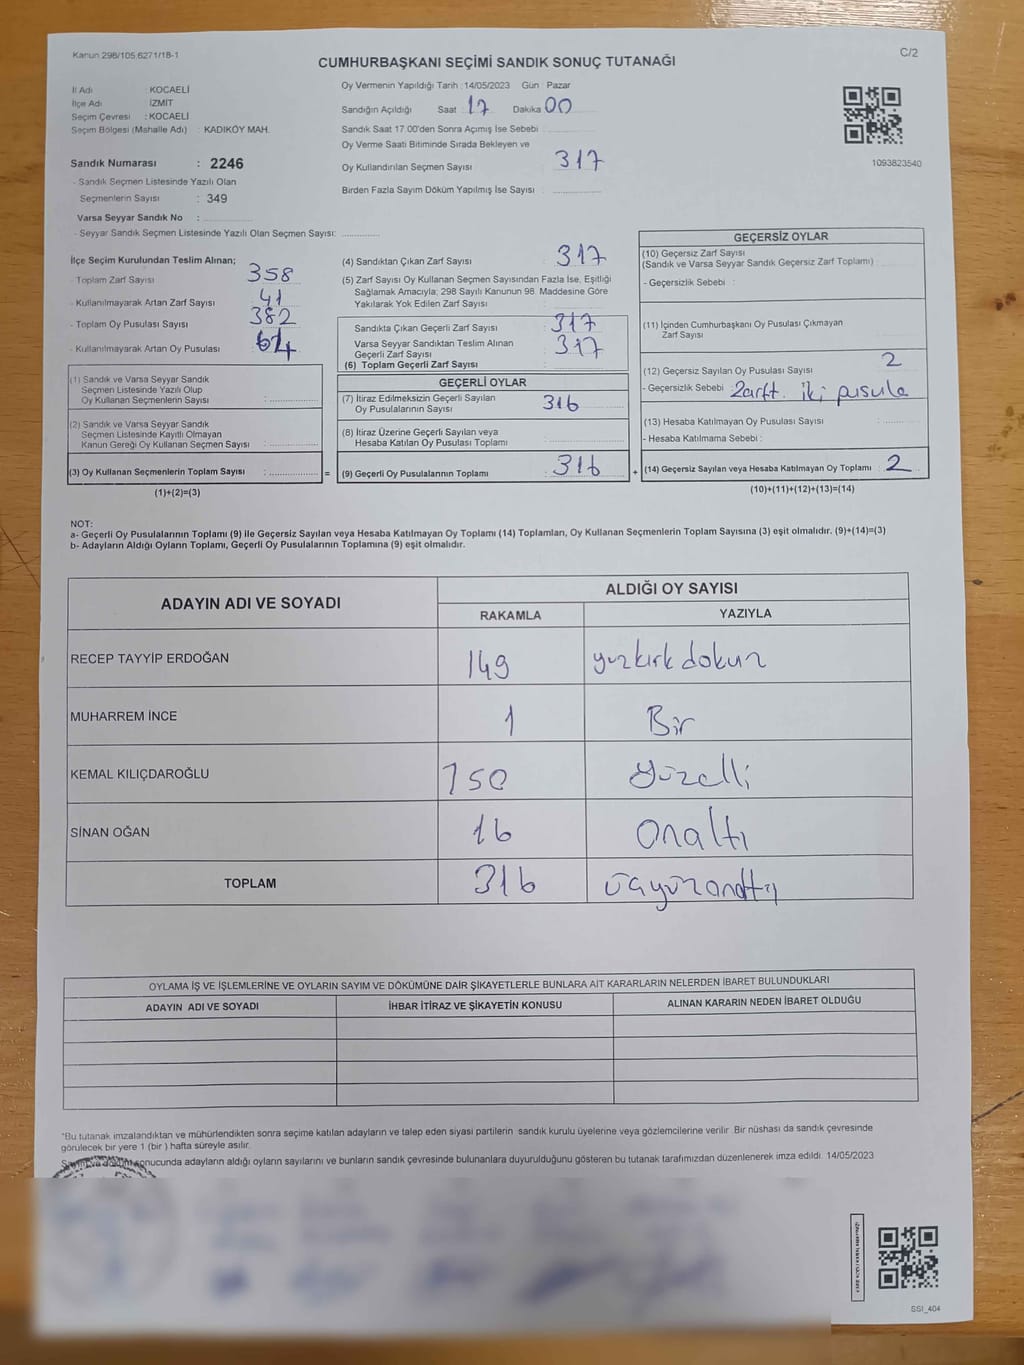 Kanun 298/105,6271/18-1
C/2
CUMHURBAŞKANI SEÇİMİ SANDIK SONUÇ TUTANAĞI
İl Adı : KOCAELİ
İlçe Adı : İZMİT
Seçim Çevresi : KOCAELİ
Seçim Bölgesi (Mahalle Adı) : KADIKÖY MAH.
Sandık Numarası : 2246
- Sandık Seçmen Listesinde Yazılı Olan
Seçmenlerin Sayısı : 349
Varsa Seyyar Sandık No :
- Seyyar Sandık Seçmen Listesinde Yazılı Olan Seçmen Sayısı:
Oy Vermenin Yapıldığı Tarih : 14/05/2023 Gün : Pazar
Sandığın Açıldığı Saat 17 Dakika 00
Sandık Saat 17.00'den Sonra Açımış İse Sebebi
Oy Verme Saati Bitiminde Sırada Bekleyen ve
Oy Kullandırılan Seçmen Sayısı : 317
Birden Fazla Sayım Döküm Yapılmış İse Sayısı :
1093823540
İlçe Seçim Kurulundan Teslim Alınan;
- Toplam Zarf Sayısı : 358
- Kullanılmayarak Artan Zarf Sayısı : 41
- Toplam Oy Pusulası Sayısı : 382
- Kullanılmayarak Artan Oy Pusulası : 64
(1) Sandık ve Varsa Seyyar Sandık
Seçmen Listesinde Yazılı Olup
Oy Kullanan Seçmenlerin Sayısı :
(2) Sandık ve Varsa Seyyar Sandık
Seçmen Listesinde Kayıtlı Olmayan
Kanun Gereği Oy Kullanan Seçmen Sayısı :
(3) Oy Kullanan Seçmenlerin Toplam Sayısı :
=
(1)+(2)=(3)
(4) Sandıktan Çıkan Zarf Sayısı : 317
(5) Zarf Sayısı Oy Kullanan Seçmen Sayısından Fazla İse, Eşitliği
Sağlamak Amacıyla; 298 Sayılı Kanunun 98. Maddesine Göre
Yakılarak Yok Edilen Zarf Sayısı :
Sandıkta Çıkan Geçerli Zarf Sayısı : 317
Varsa Seyyar Sandıktan Teslim Alınan
Geçerli Zarf Sayısı : 317
(6) Toplam Geçerli Zarf Sayısı :
GEÇERLİ OYLAR
(7) İtiraz Edilmeksizin Geçerli Sayılan
Oy Pusulalarının Sayısı : 316
(8) İtiraz Üzerine Geçerli Sayılan veya
Hesaba Katılan Oy Pusulası Toplamı :
(9) Geçerli Oy Pusulalarının Toplamı : 316
+
GEÇERSİZ OYLAR
(10) Geçersiz Zarf Sayısı
(Sandık ve Varsa Seyyar Sandık Geçersiz Zarf Toplamı) :
- Geçersizlik Sebebi :
(11) İçinden Cumhurbaşkanı Oy Pusulası Çıkmayan
Zarf Sayısı :
(12) Geçersiz Sayılan Oy Pusulası Sayısı : 2
- Geçersizlik Sebebi : Zarft. iki pusula
(13) Hesaba Katılmayan Oy Pusulası Sayısı :
- Hesaba Katılmama Sebebi :
(14) Geçersiz Sayılan veya Hesaba Katılmayan Oy Toplamı : 2
(10)+(11)+(12)+(13)=(14)
NOT:
a- Geçerli Oy Pusulalarının Toplamı (9) ile Geçersiz Sayılan veya Hesaba Katılmayan Oy Toplamı (14) Toplamları, Oy Kullanan Seçmenlerin Toplam Sayısına (3) eşit olmalıdır. (9)+(14)=(3)
b- Adayların Aldığı Oyların Toplamı, Geçerli Oy Pusulalarının Toplamına (9) eşit olmalıdır.
ADAYIN ADI VE SOYADI
ALDIĞI OY SAYISI
RAKAMLA YAZIYLA
RECEP TAYYİP ERDOĞAN 149 yüzkırk dokuz
MUHARREM İNCE 1 Bir
KEMAL KILIÇDAROĞLU 150 yüzelli
SİNAN OĞAN 16 onaltı
TOPLAM 316 üçyüzonaltı
OYLAMA İŞ VE İŞLEMLERİNE VE OYLARIN SAYIM VE DÖKÜMÜNE DAİR ŞİKAYETLERLE BUNLARA AİT KARARLARIN NELERDEN İBARET BULUNDUKLARI
ADAYIN ADI VE SOYADI İHBAR İTİRAZ VE ŞİKAYETİN KONUSU ALINAN KARARIN NEDEN İBARET OLDUĞU
*Bu tutanak imzalandıktan ve mühürlendikten sonra seçime katılan adayların ve talep eden siyasi partilerin sandık kurulu üyelerine veya gözlemcilerine verilir. Bir nüshası da sandık çevresinde
görülecek bir yere 1 (bir) hafta süreyle asılır.
Sayım ve döküm sonucunda adayların aldığı oyların sayılarını ve bunların sandık çevresinde bulunanlara duyurulduğunu gösteren bu tutanak tarafımızdan düzenlenerek imza edildi. 14/05/2023
SSI_404